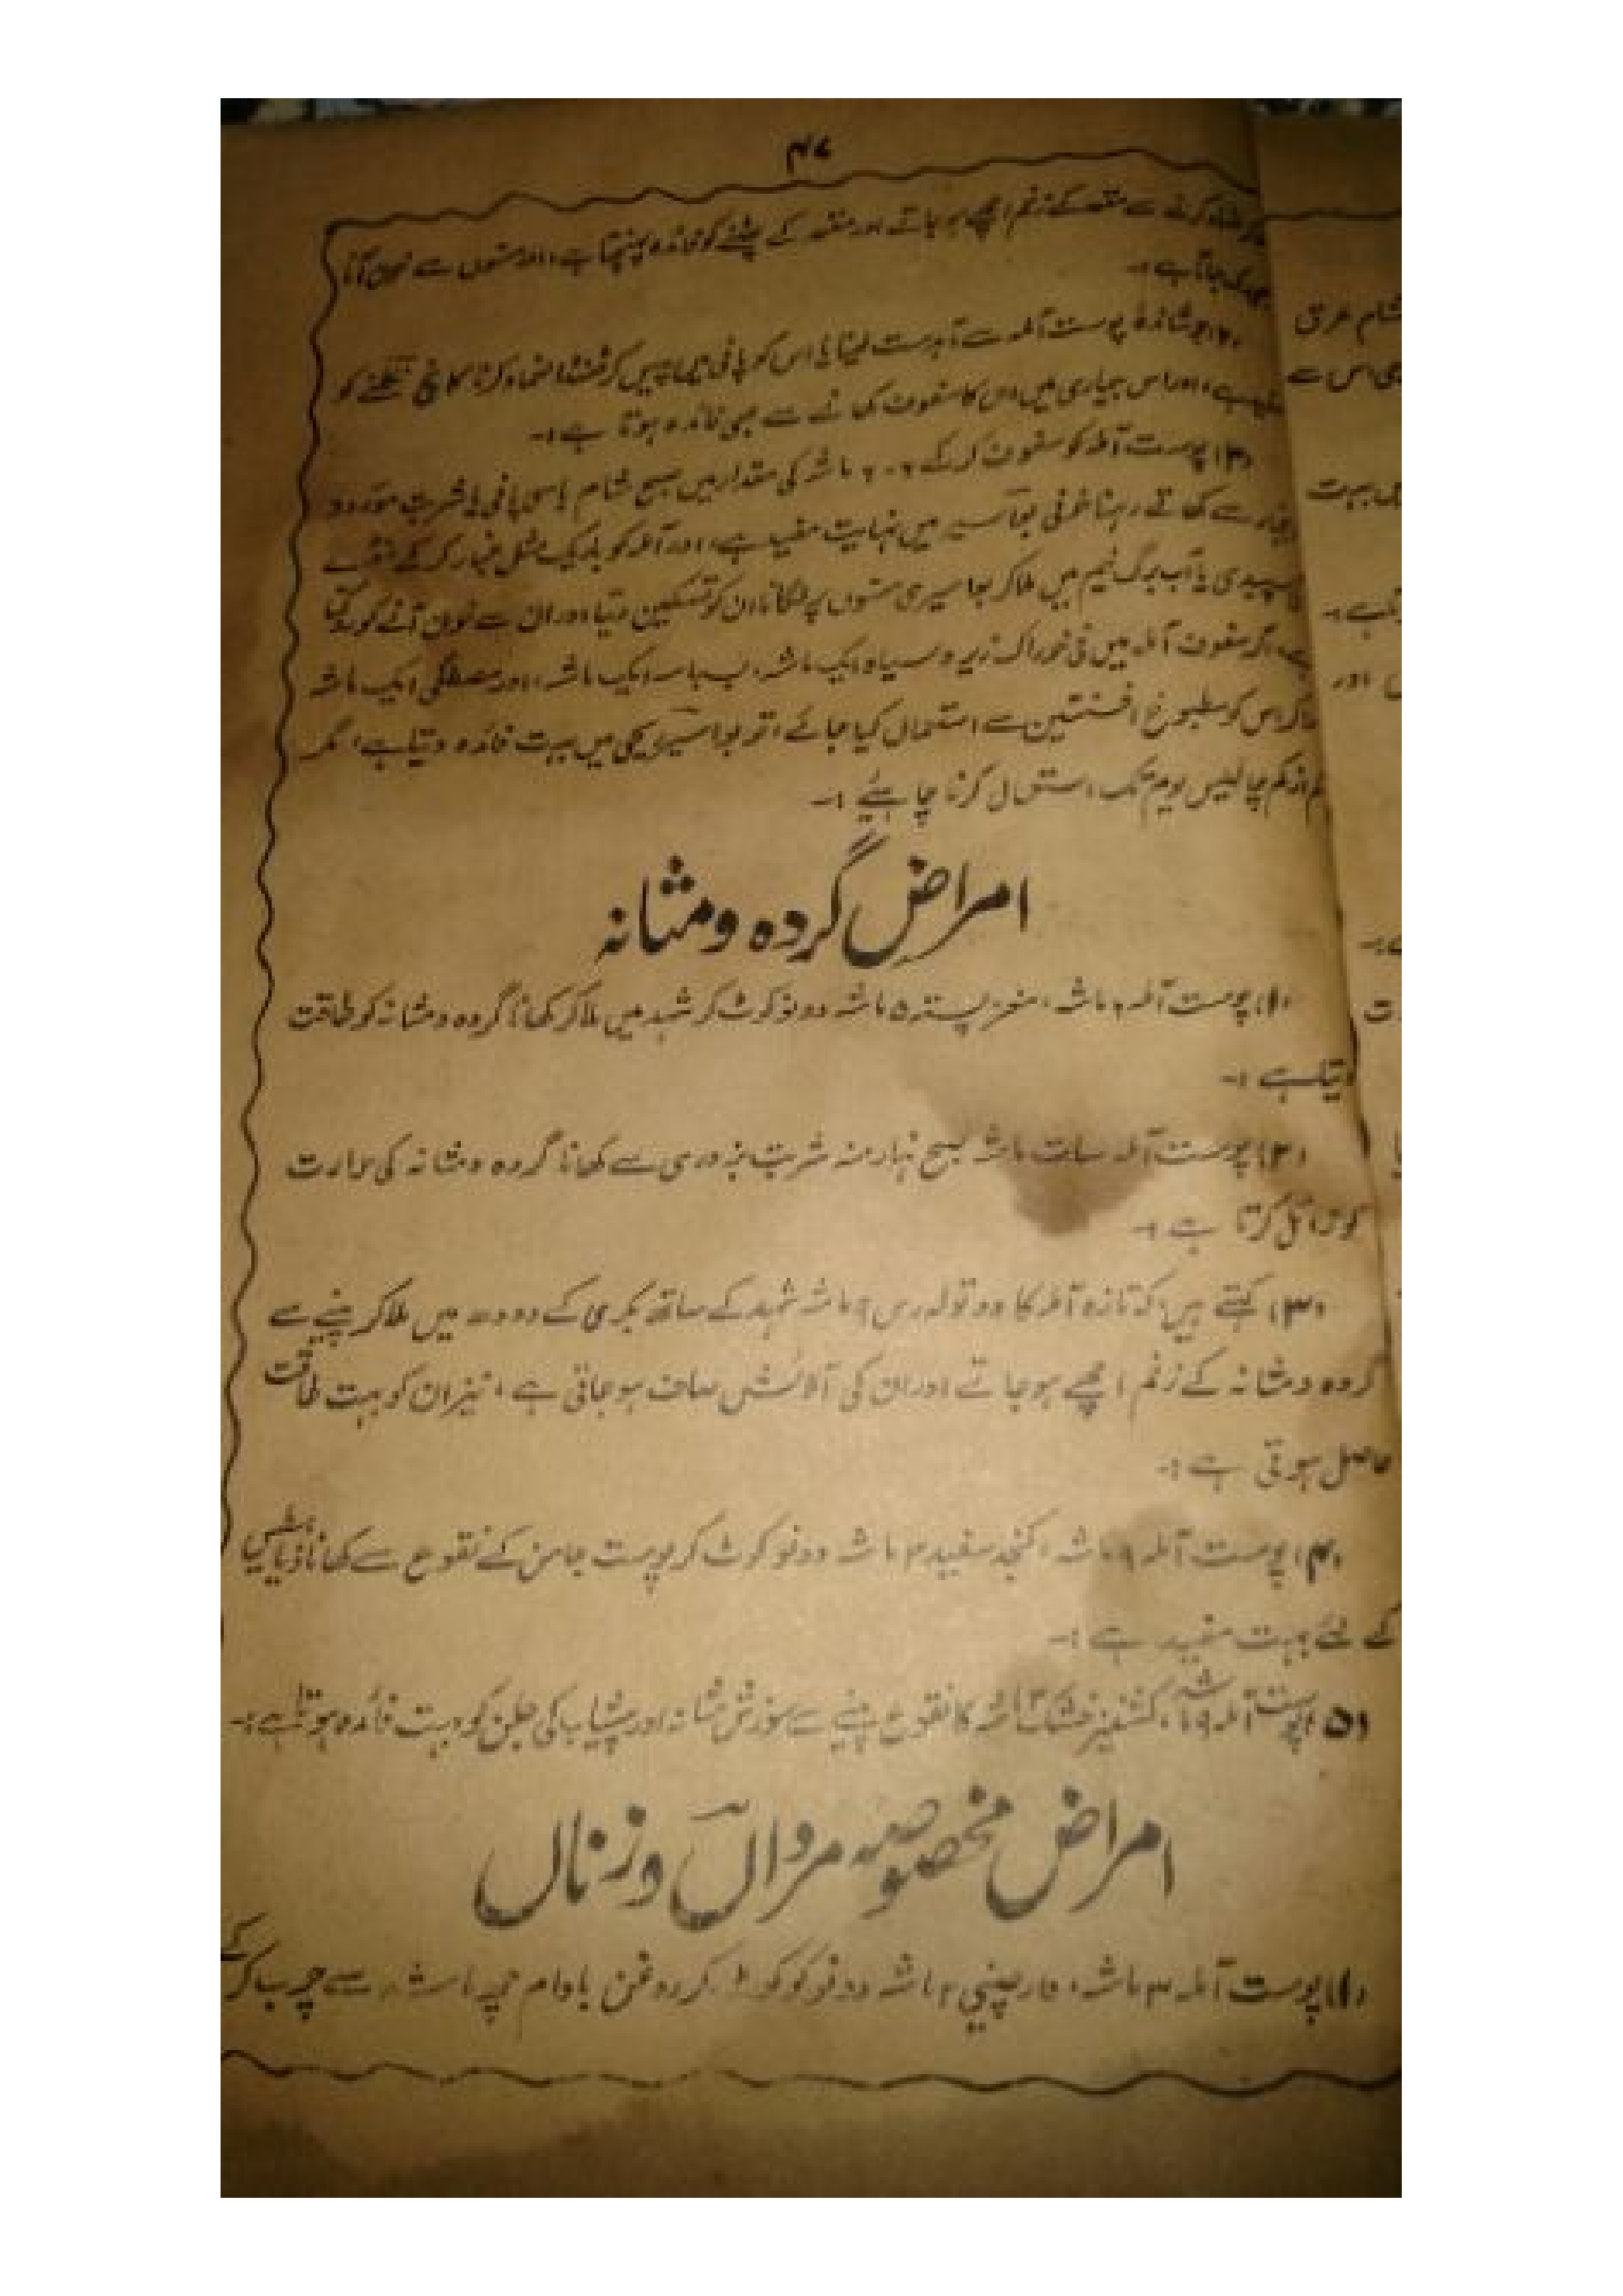 ۴۷
کرنے سے مقعد کے زخم اچھے ہو جاتے اور مقعد کے پھٹنے کو فائدہ پہنچتا ہے، اور مسّوں سے خون آنا
جاتا ہے:-
(۲) جوشاندہ پوست آملہ سے آبدست لینا یا اس کو پانی میں پیس کر ضماد کرنا کانچ نکلنے کو
ہے، اور اس بیماری میں اس کا سفوف کھانے سے بھی فائدہ ہوتا ہے:-
(۳) پوست آملہ کو سفوف کر کے ۶-۶ ماشہ کی مقدار میں صبح شام باسی پانی یا شربت
سے کھاتے رہنا خونی بواسیر میں نہایت مفید ہے، اور آملہ کو باریک مثل غبار کر کے
سپیدی یا آب برگ نیم میں ملا کر بواسیری مسّوں پر لگانا ان کو تسکین دیتا اور ان سے خون آنے کو روکتا
ہے، اگر سفوف آملہ میں فی خوراک زیرہ سیاہ ایک ماشہ، بسباسہ ایک ماشہ، اور مصطگی ایک ماشہ
ملا کر اس کو مطبوخ افسنتین سے استعمال کیا جائے، تو بواسیر ریحی میں بہت فائدہ دیتا ہے، مگر
کم از کم چالیس یوم تک استعمال کرنا چاہئیے:-
امراضِ گردہ و مثانہ
(۱) پوست آملہ ۶ ماشہ، مغز پستہ ۵ ماشہ دونو کوٹ کر شہد میں ملا کر کھانا گردہ و مثانہ کو طاقت
دیتا ہے:-
(۲) پوست آملہ سات ماشہ صبح نہار منہ شربت بزوری سے کھانا گردہ و مثانہ کی حرارت
کو زائل کرتا ہے:-
(۳) کہتے ہیں کہ تازہ آملہ کا دو تولہ رس ۶ ماشہ شہد کے ساتھ بکری کے دودھ میں ملا کر پینے سے
گردہ و مثانہ کے زخم اچھے ہو جاتے اور ان کی آلائش صاف ہو جاتی ہے، نیز ان کو بہت طاقت
حاصل ہوتی ہے:-
(۴) پوست آملہ ۹ ماشہ، کنجد سفید ۳ ماشہ دونو کوٹ کر پوست جامن کے نقوع سے کھانا ذیابیطس
کے لئے بہت مفید ہے:-
(۵) پوست آملہ ۹ ماشہ، کشنیز خشک ماشہ کا نقوع پینے سے سوزش مثانہ اور پیشاب کی جلن کو بہت فائدہ ہوتا ہے:-
امراض مخصوصہ مرداں و زناں
(۱) پوست آملہ ۳ ماشہ، دارچینی ۲ ماشہ دونو کو کوٹ کر روغن بادام چھ ماشہ سے چرب کر کے
شام عرق
اس سے
میں بہت
اور